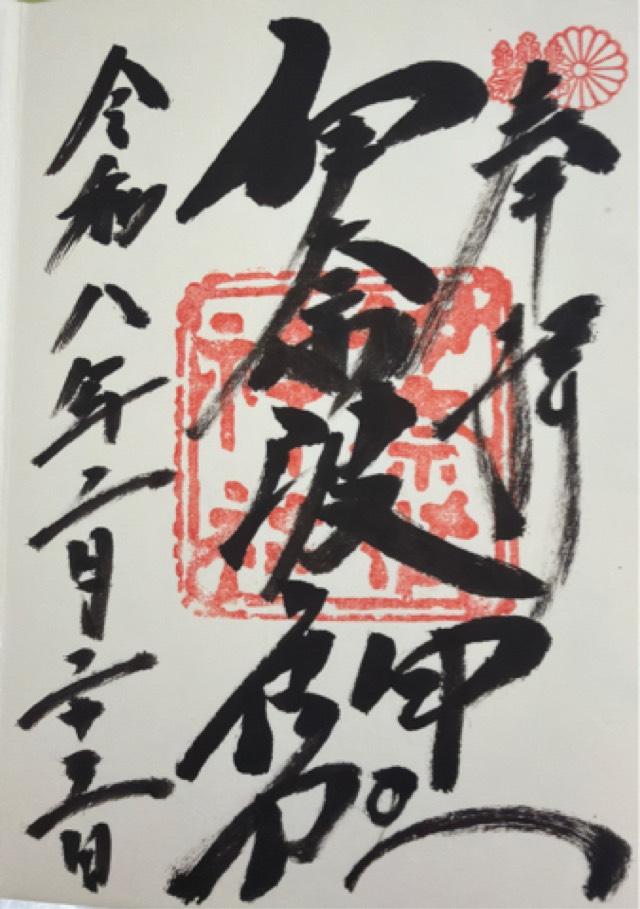 奉拝
伊奈波神社
令和八年二月二十三日